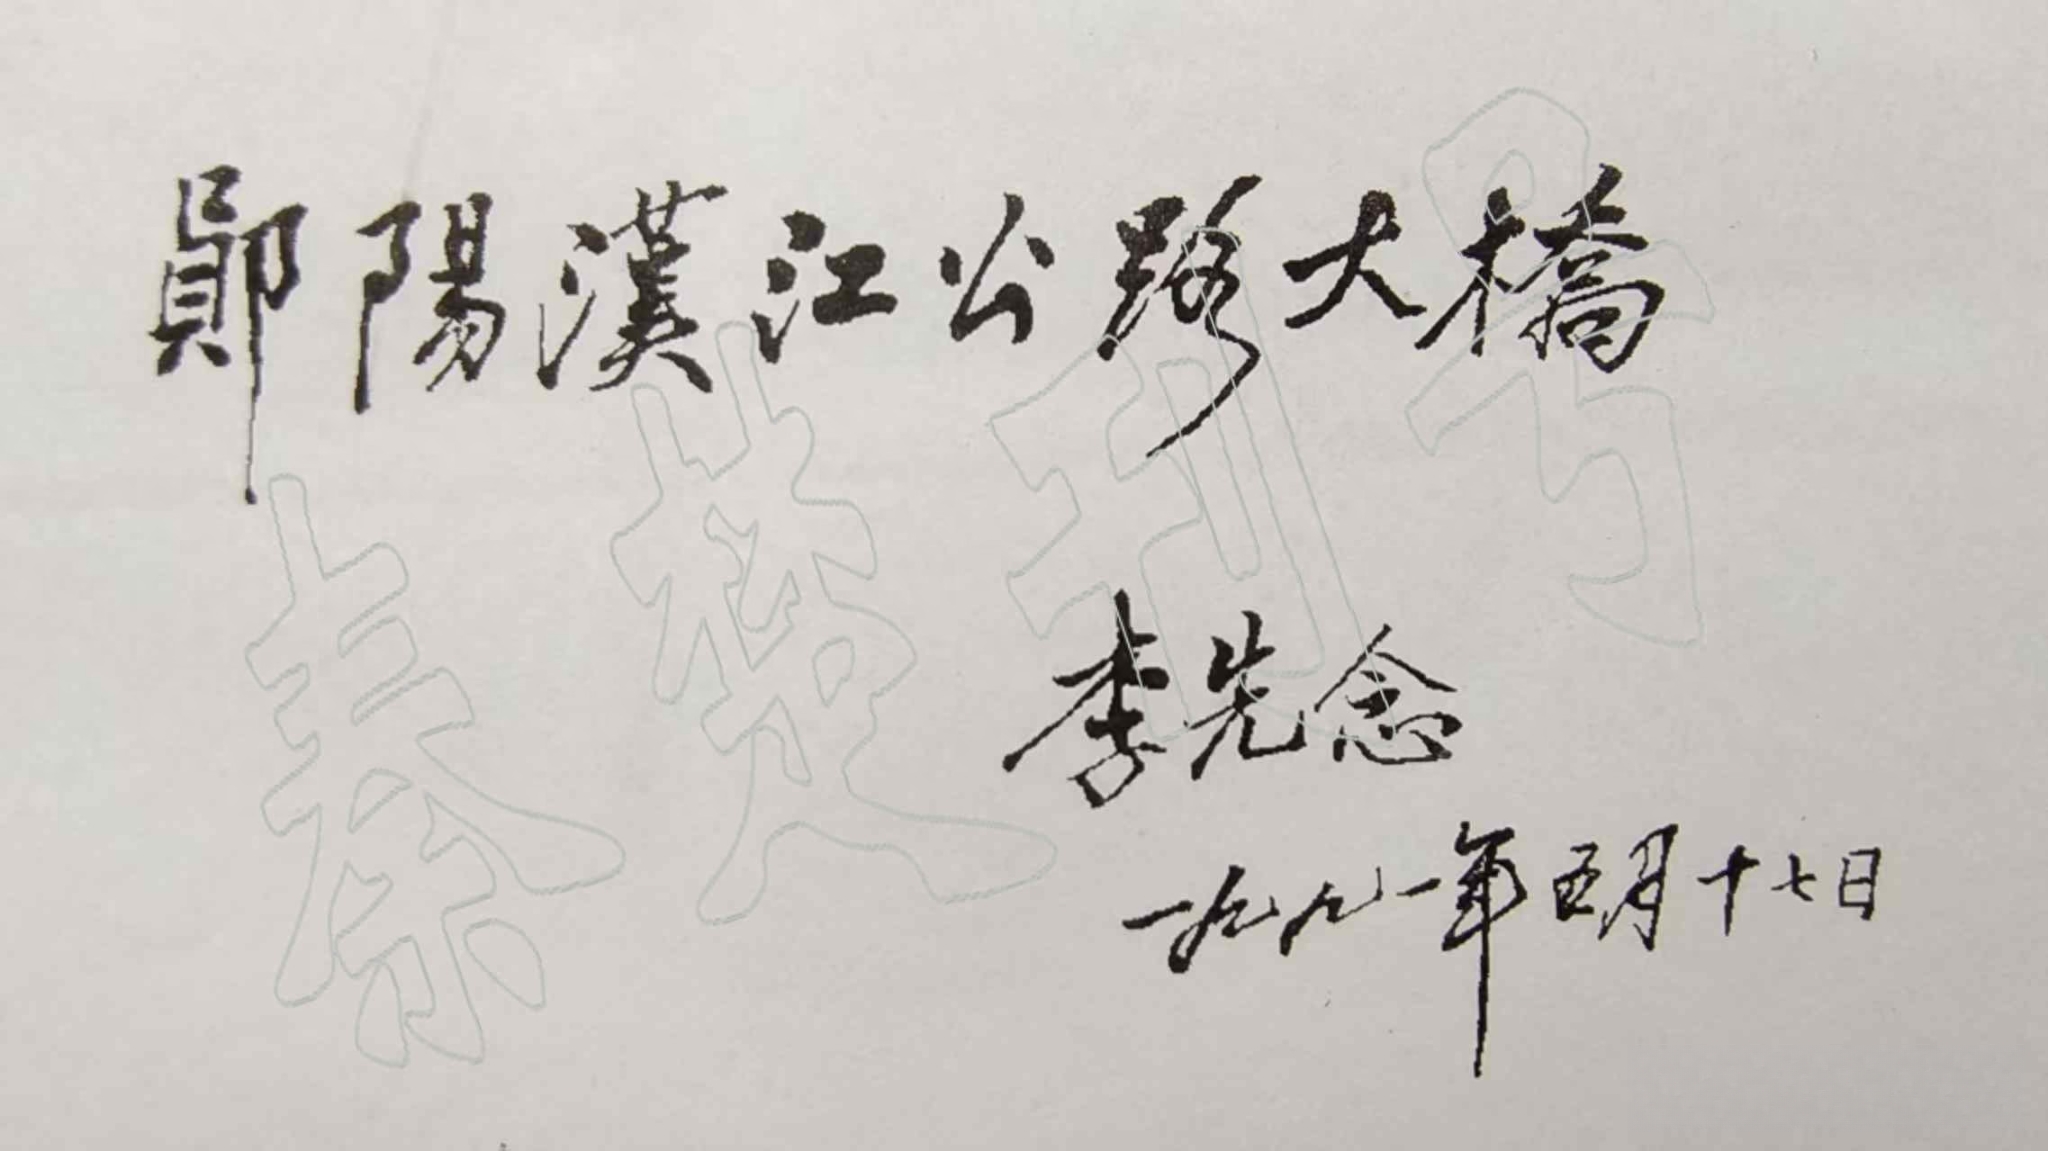 鄖陽漢江公路大橋
李先念
一九九一年五月十七日
秦楚刊号